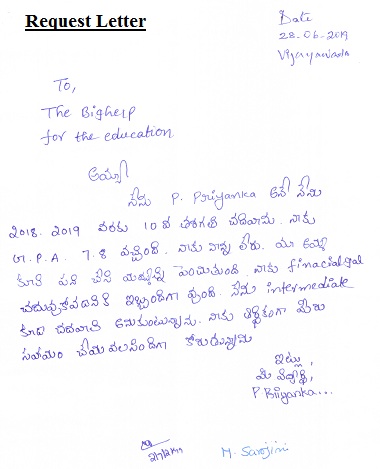 Request Letter
Date
28-06-2019
Vijayawada
To,
The Bighelp
for the education
అయ్యా
నేను P. Priyanka అనే నేను
2018-2019 వరకు 10 వ తరగతి చదివాను. నాకు
G.P.A. 7.8 వచ్చింది. నాకు నాన్న లేరు. మా అమ్మ
కూలి పని చేసి మమ్మల్ని పెంచుతుంది. నాకు finacialgal
చదువుకోవడానికి ఇబ్బందిగా వుంది. నేను intermediate
కూడా చదవాలి అనుకుంటున్నాను. నాకు ఆర్థికంగా మీరు
సహాయం చేయవలసిందిగా కోరుతున్నాను
ఇట్లు,
మీ విద్యార్థి,
P Priyanka...
M. Sarojini